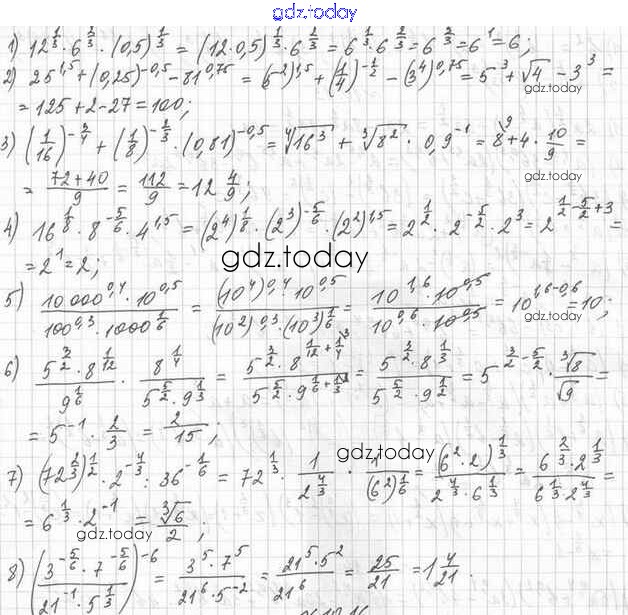 gdz.today
1) 12^{1/3} · 6^{2/3} · (0,5)^{1/3} = (12·0,5)^{1/3} · 6^{2/3} = 6^{1/3} · 6^{2/3} = 6^{3/3} = 6^1 = 6;
2) 25^{1,5} + (0,25)^{-0,5} - 81^{0,75} = (5^2)^{1,5} + (1/4)^{-1/2} - (3^4)^{0,75} = 5^3 + √4 - 3^3 =
gdz.today
= 125 + 2 - 27 = 100;
3) (1/16)^{-3/4} + (1/8)^{-2/3} · (0,81)^{-0,5} = ⁴√16^3 + ³√8^2 · 0,9^{-1} = 8^{\9} + 4 · 10/9 =
gdz.today
= (72+40)/9 = 112/9 = 12 4/9;
4) 16^{1/8} · 8^{-5/6} · 4^{1,5} = (2^4)^{1/8} · (2^3)^{-5/6} · (2^2)^{1,5} = 2^{1/2} · 2^{-5/2} · 2^3 = 2^{1/2 - 5/2 + 3} =
gdz.today
= 2^1 = 2;
5) (10 000^{0,4} · 10^{0,5})/(100^{0,3} · 1000^{1/6}) = ((10^4)^{0,4} · 10^{0,5})/((10^2)^{0,3} · (10^3)^{1/6}) = (10^{1,6} · 10^{0,5})/(10^{0,6} · 10^{0,5}) = 10^{1,6-0,6} = 10;
gdz.today
6) (5^{3/2} · 8^{1/12})/(9^{1/6}) · (8^{1/4})/(5^{5/2} · 9^{1/3}) = (5^{3/2} · 8^{1/12 + 1/4^{\3}})/(5^{5/2} · 9^{1/6 + 1/3^{\2}}) = (5^{3/2} · 8^{1/3})/(5^{5/2} · 9^{1/2}) = 5^{3/2 - 5/2} · ³√8/√9 =
gdz.today
= 5^{-1} · 2/3 = 2/15;
gdz.today
7) (72^{2/3})^{1/2} · 2^{-4/3} : 36^{-1/6} = 72^{1/3} · 1/(2^{4/3}) · 1/(6^2)^{1/6} = ((6^2·2)^{1/3})/(2^{4/3} · 6^{1/3}) = (6^{2/3} · 2^{1/3})/(6^{1/3} 2^{4/3}) =
= 6^{1/3} · 2^{-1} = ³√6/2;
gdz.today
8) ((3^{-5/6} · 7^{-5/6})/(21^{-1} · 5^{1/3}))^{-6} = (3^5 · 7^5)/(21^6 · 5^{-2}) = (21^5 · 5^2)/(21^6) = 25/21 = 1 4/21.
gdz.today